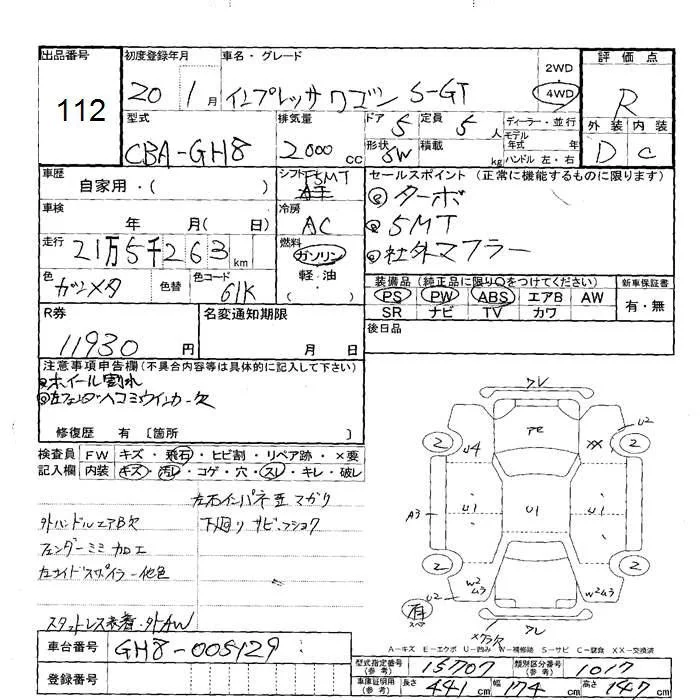 出品番号 112
初度登録年月 20 1月
車名・グレード インプレッサワゴン S-GT
2WD 4WD
評価点 R
外装 D 内装 C
型式 CBA-GH8
排気量 2000cc
ドア 5 定員 5人
ディーラー・並行
モデル年式 年
形状 SW 積載 kg ハンドル 左・右
車歴 自家用・( )
シフト 5MT
セールスポイント (正常に機能するものに限ります)
ターボ
5MT
社外マフラー
車検 年 月( 日)
冷房 AC
走行 21万5千263km
燃料 ガソリン 軽・油 ( )
色 ガンメタ 色替 色コード 61K
装備品 (純正品に限り○をつけてください) 新車保証書
PS PW ABS エアB AW 有・無
SR ナビ TV カワ
後日品
R券 11930円
名変通知期限 月 日
注意事項申告欄(不具合内容等は具体的に記入して下さい)
ホイール割れ
左フェンダーヘコミウインカー欠
修復歴 有 〔箇所 〕
検査員 FW キズ・飛石・ヒビ割・リペア跡・×要
記入欄 内装 キズ・汚レ・コゲ・穴・スレ・キレ・破レ
左右インパネ歪マガリ
外ハンドルエアB欠 下廻りサビ・フショク
フェンダーミミ加工
左サイドスポイラー他色
スタットレス来着・外AW
車台番号 GH8-005129
登録番号
フレ
PE
U4 XX U2
2 2
A3 U1 U1 U1
2 2
U2 W2 W2
有 スペア
フレ
A=キズ E=エクボ U=凹み W=補修跡 S=サビ C=腐食 XX=交換済
型式指定番号(参考) 15707 類別区分番号(参考) 1017
車庫証明用(参考) 長さ 441cm 幅 174cm 高さ 147cm